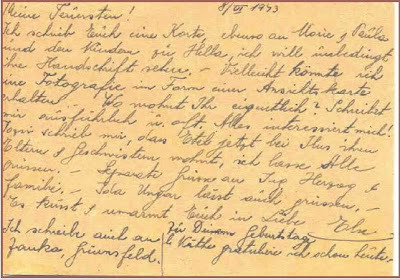 Meine Teuersten! 8/VI 1943
Ich schrieb Euch eine Karte, ebenso an Moire, Paula
und den Kindern zu Hella, ich will unbedingt
ihre Handschrift sehen. – Vielleicht könnte ich
eine Fotografie in Form einer Ansichtskarte
erhalten. – Wo wohnt Ihr eigentlich? Schreibet
mir ausführlich u. oft. Alles interessiert mich!
schrieb mir, dass Etel jetzt bei Ilus ihren
Eltern & Geschwistern, wohnt, ich lasse Alle
grüssen. – Grüsse an Ing Herzog &
Familie. – Ida Ungar lässt auch grüssen. –
Es küsst & umarmt Euch in Liebe Else
Ich schreibe auch an
Janka, Grünfeld.
Zu Deinem Geburtstage
l. gratuliere ich schon heute.